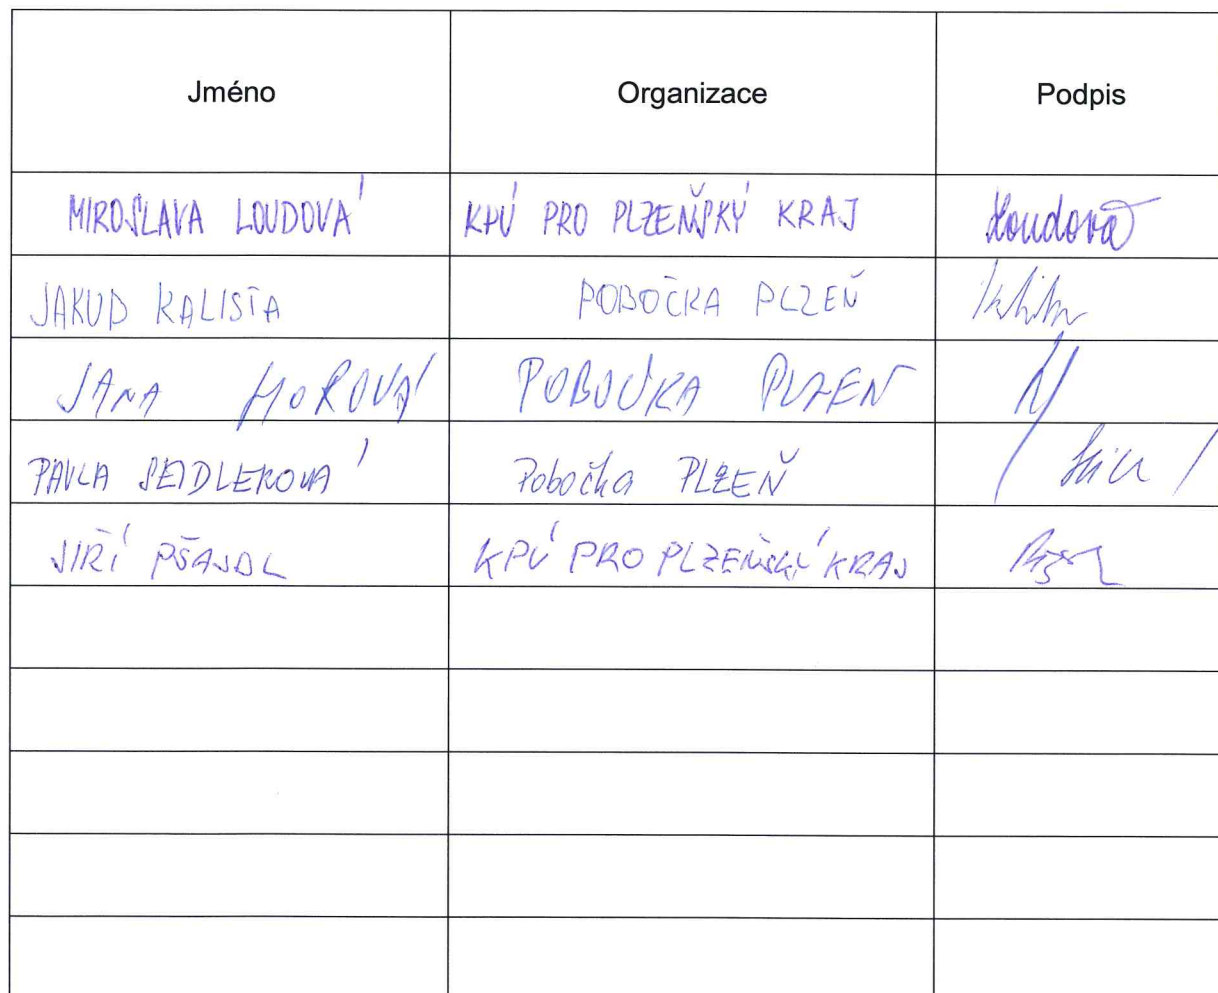 Jméno Organizace Podpis
MIROSLAVA LOUDOVÁ KPÚ PRO PLZEŇSKÝ KRAJ Loudová
JAKUB KALISTA POBOČKA PLZEŇ
JANA HOROVÁ POBOČKA PLZEŇ
PAVLA SEIDLEROVÁ Pobočka PLZEŇ
JIŘÍ PŠAJDL KPÚ PRO PLZEŇSKÝ KRAJ